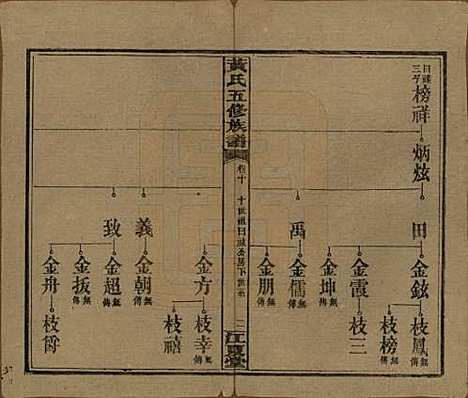 三子
榜祥
炳炫
田
金鉉
枝鳳
無傳
枝榜
無傳
金霞
枝三
金坤
無傳
禹
金儒
無傳
金朋
無傳
黃氏五修族譜
卷十
江夏堂
金方
枝幸
無傳
枝禧
義
金朝
無傳
致
金超
無傳
金扳
無傳
金舟
枝